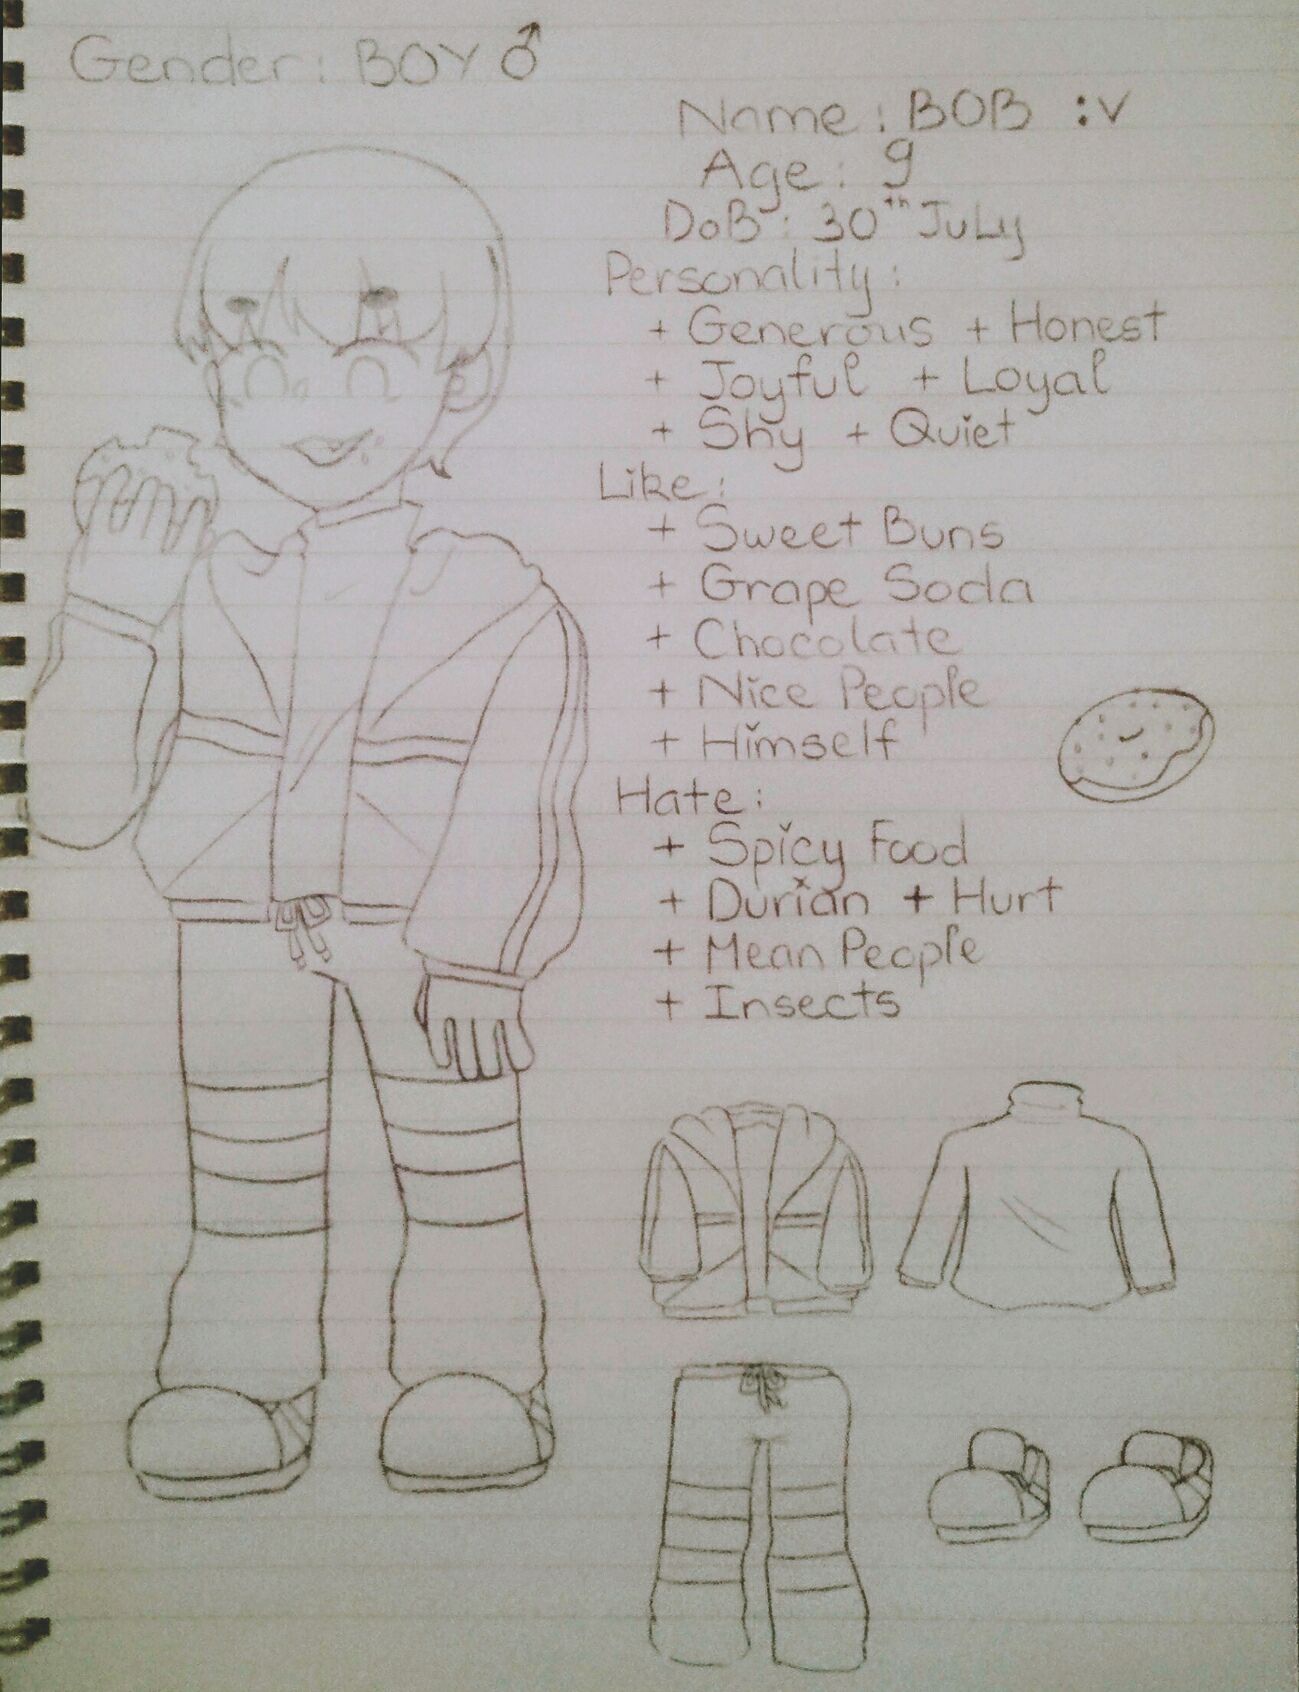 Gender: BOY ♂
Name: BOB :v
Age: 9
DoB: 30th JuLy
Personality:
+ Generous + Honest
+ Joyful + Loyal
+ Shy + Quiet
Like:
+ Sweet Buns
+ Grape Soda
+ Chocolate
+ Nice People
+ Himself
Hate:
+ Spicy Food
+ Durian + Hurt
+ Mean People
+ Insects